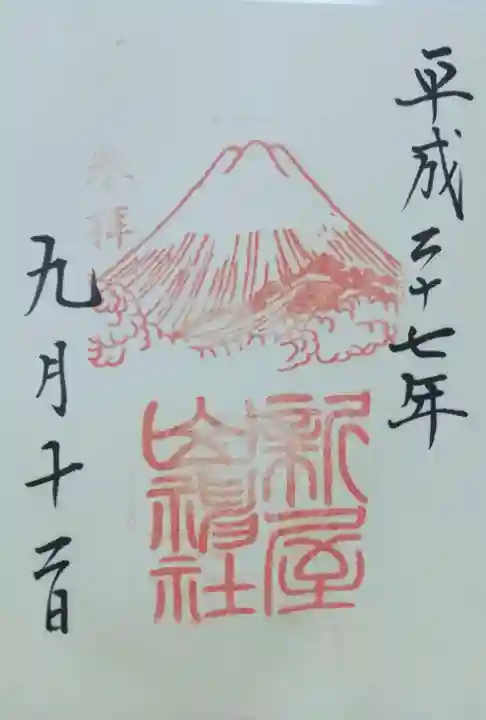 平成二十七年
新屋
山神社
参拝
九月十二日